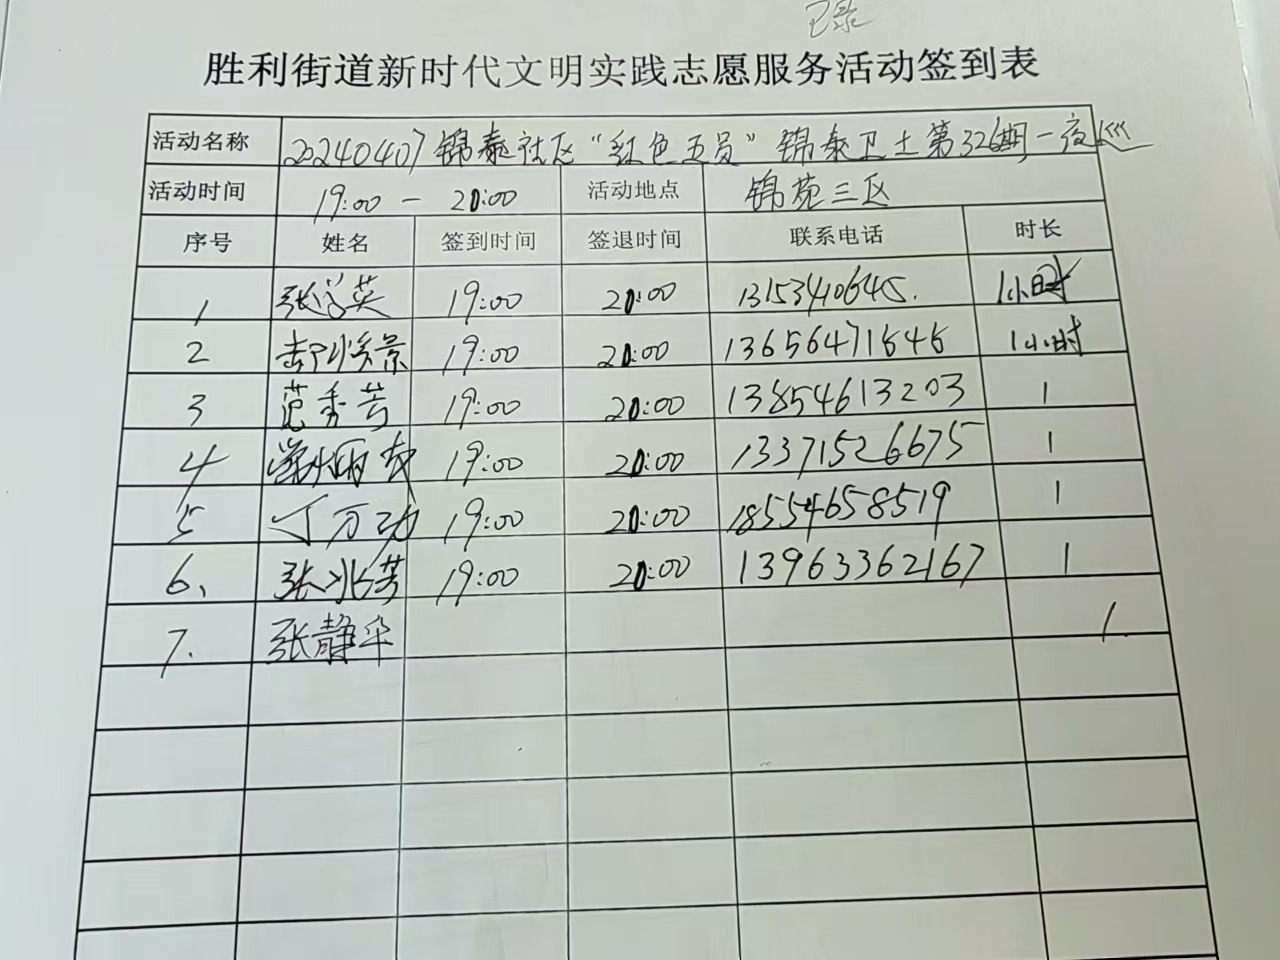 已录
胜利街道新时代文明实践志愿服务活动签到表
活动名称 20240407锦泰社区“红色五员”锦泰卫士第326期一夜巡
活动时间 19:00 — 20:00 活动地点 锦苑三区
序号 姓名 签到时间 签退时间 联系电话 时长
1 张学英 19:00 20:00 13153410645. 1小时
2 19:00 20:00 13656471646 1小时
3 范秀芳 19:00 20:00 13854613203 1
4 19:00 20:00 13371526675 1
5 丁万功 19:00 20:00 18554658519 1
6、 张兆芳 19:00 20:00 13963362167 1
7. 张静华 1.